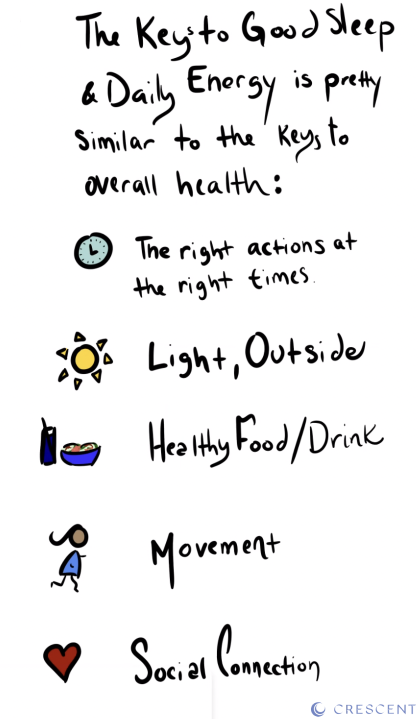 The Keys to Good Sleep
& Daily Energy is pretty
similar to the keys to
overall health:
The right actions at
the right times.
Light, Outside
Healthy Food/Drink
Movement
Social Connection
CRESCENT